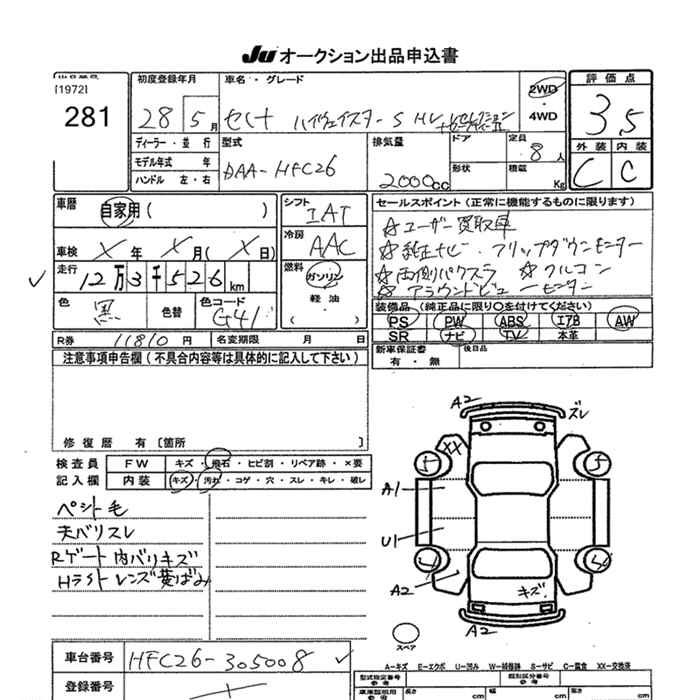 Ju オークション出品申込書
出品番号 初度登録年月 車名・グレード 2WD 評価点
[1972]
281 28 5月 セレナ ハイウェイスターS HV Vセレクション 4WD 3.5
ディーラー・並行 型式 排気量 ドア 定員 8人 外装 内装
モデル年式 年 DAA-HFC26 2000cc 形状 積載 Kg C C
ハンドル 左・右
車歴 自家用( ) シフト IAT セールスポイント (正常に機能するものに限ります)
☆ユーザー買取車
車検 X年 X月 (X日) 冷房 AAC ☆純正ナビ・フリップダウンモニター
走行 12万3千526km 燃料 ガソリン ☆両側パワスラ ☆クルコン
☆アラウンドビューモニター
色 黒 色替 色コード G41 軽油 ・ ( ) 装備品 (純正品に限り○を付けてください)
PS PW ABS エアB AW
R券 11810円 名変期限 月 日 SR ナビ TV 本革
注意事項申告欄 (不具合内容等は具体的に記入して下さい) 新車保証書 有・無 後日品
修復歴 有 [箇所 ]
検査員 FW キズ・飛石・ヒビ割・リペア跡・×要
記入欄 内装 キズ・汚れ・コゲ・穴・スレ・キレ・破レ
ペット毛
天バリスレ
Rゲート内バリキズ
Hライトレンズ黄ばみ
A2 ズレ
XX
5 5
A1
U1
A2 キズ
A2
スペア
車台番号 HFC26-305008
A-キズ E-エクボ U-凹み W-補修跡 S-サビ C-腐食 XX-交換済
登録番号 型式指定番号 参考 類別区分番号 参考
車庫証明用 参考 長さ cm 幅 cm 高さ cm